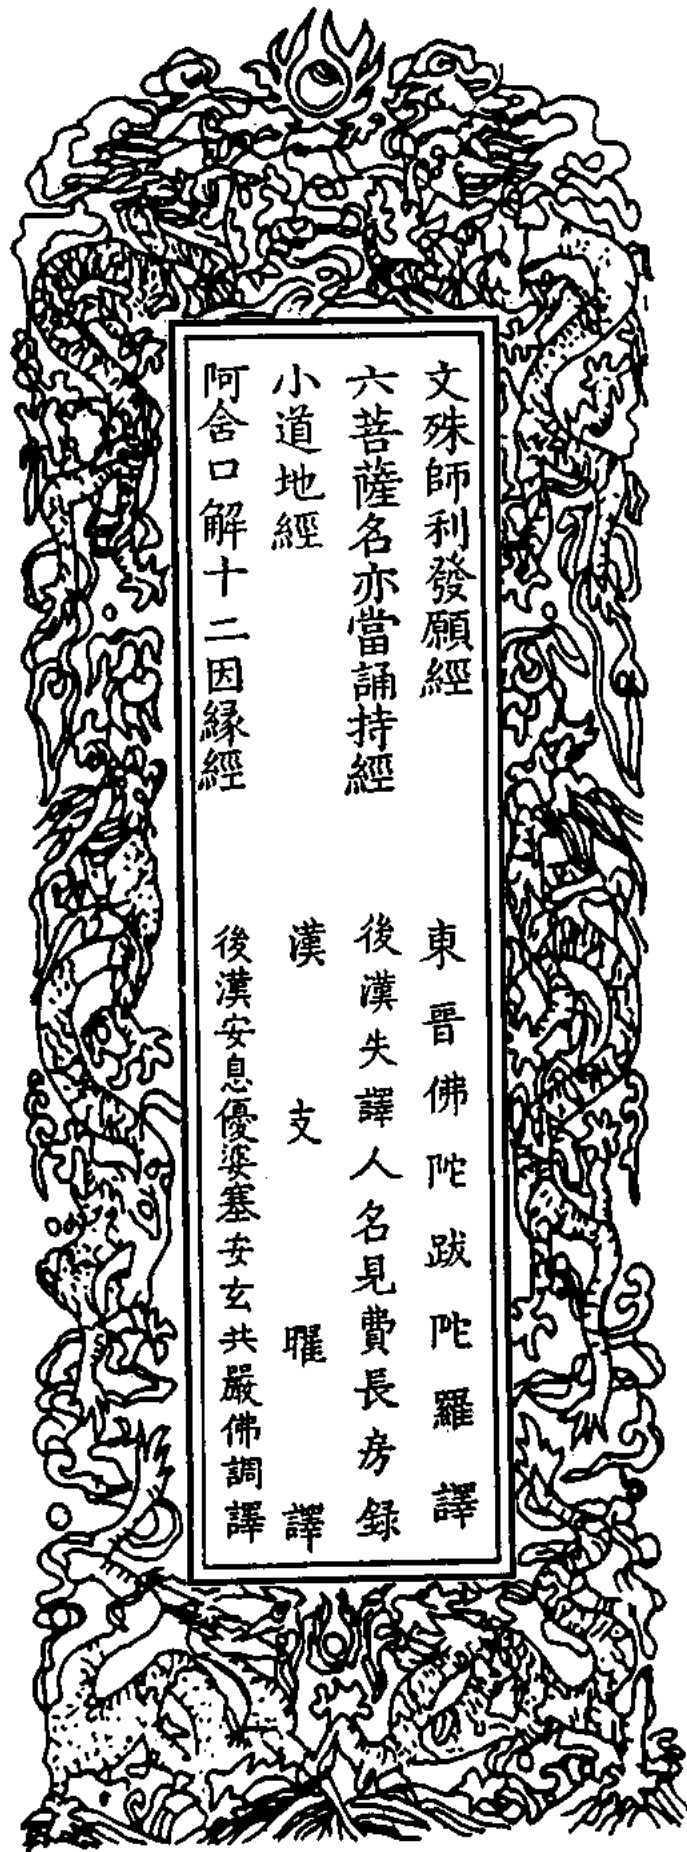 文殊師利發願經 東晉佛陀跋陀羅譯
六菩薩名亦當誦持經 後漢失譯人名見費長房録
小道地經 漢支曜譯
阿含口解十二因縁經 後漢安息優婆塞安玄共嚴佛調譯